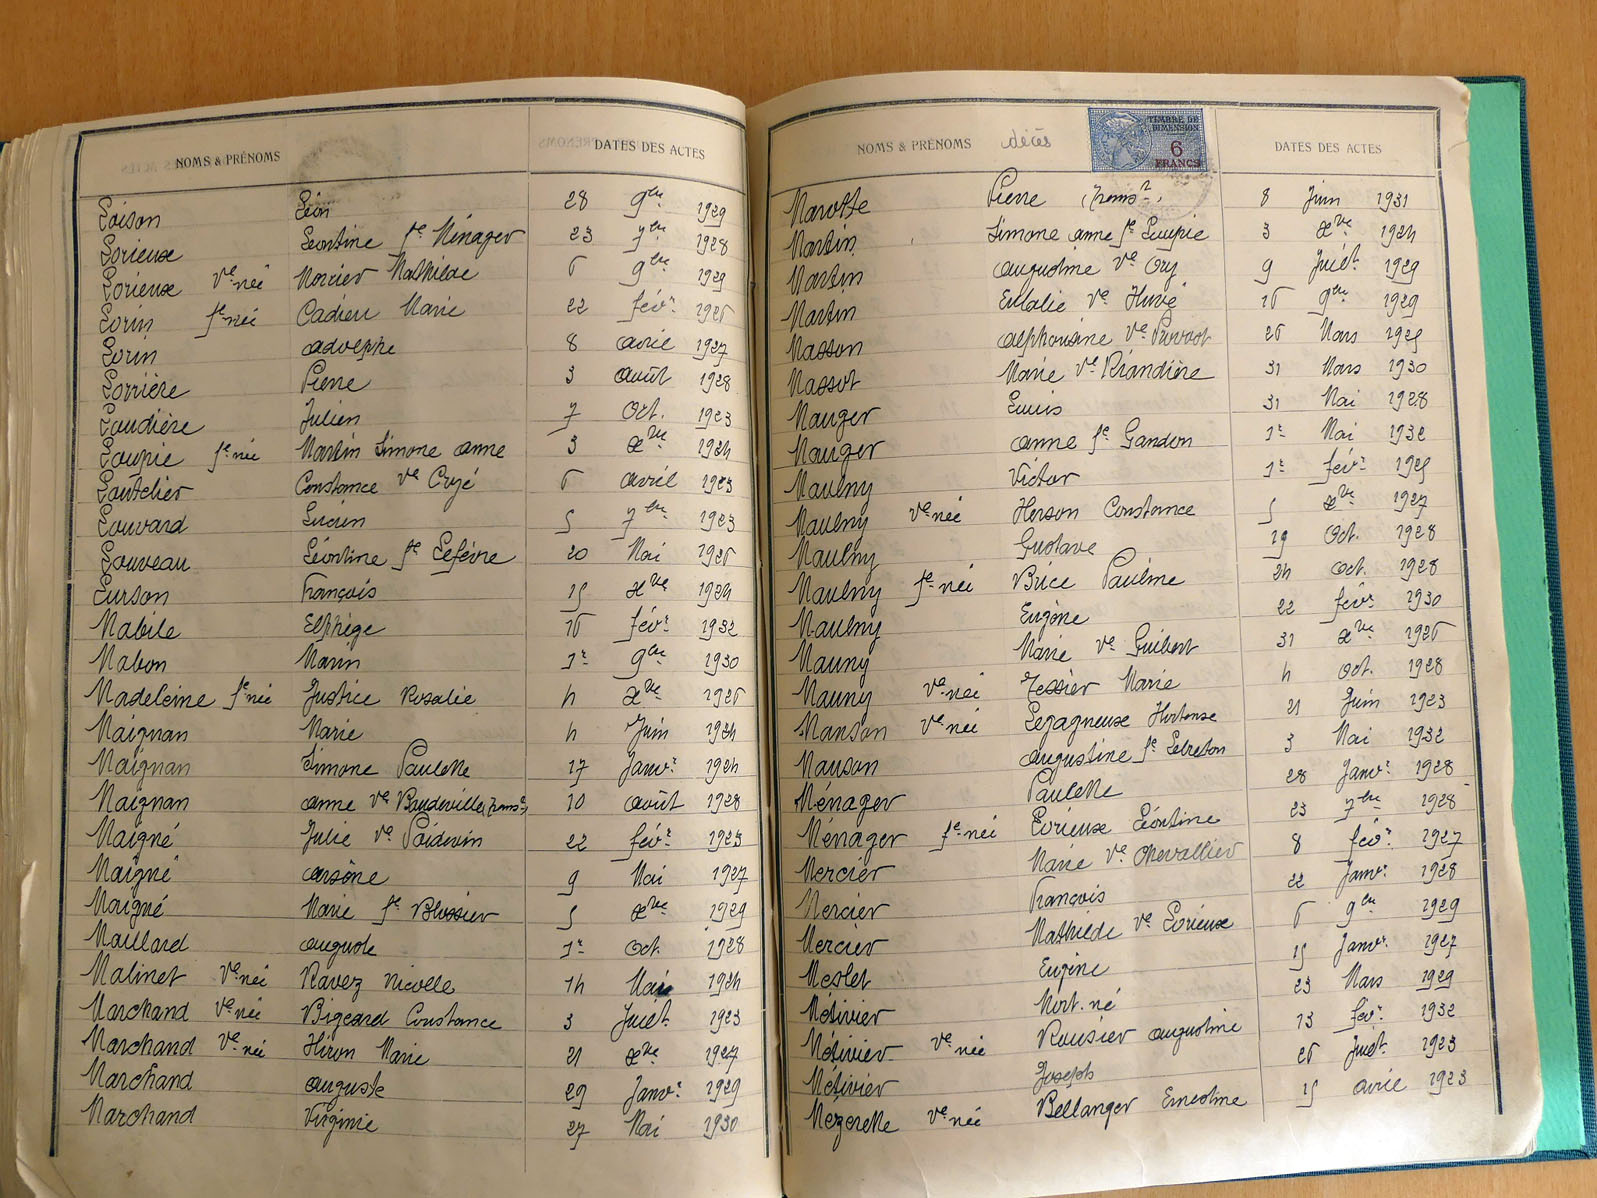 NOMS & PRÉNOMS DATES DES ACTES
Loison Léon 28 9bre 1929
Lorieux Léontine fe Ménager 23 7bre 1928
Lorieux ve née Mercier Mathilde 6 9bre 1929
Lorin fe née Cadieu Marie 22 févr 1926
Lorin adolphe 8 avril 1927
Lorrière Pierre 3 août 1928
Loudière Julien 7 Oct. 1923
Loupie fe née Martin Simone anne 3 xbre 1924
Loutelier Constance ve Crujé 6 avril 1923
Louvard Lucien 5 7bre 1923
Louveau Léontine fe Lefèvre 20 Mai 1926
Lurson François 15 xbre 1924
Mabile Elphège 16 févr 1932
Mabon Marin 1er 9bre 1930
Madeleine fe née Justice Rosalie 4 xbre 1926
Maignan Marie 4 Juin 1924
Maignan Simone Paulette 17 Janvr 1924
Maignan anne ve Baudeville (trans on) 10 août 1928
Maigné Julie ve Poidevin 22 févr 1923
Maigné arsène 9 Mai 1927
Maigné Marie fe Blossier 5 xbre 1929
Maillard auguste 1er Oct. 1928
Malinet Ve née Ravez Nicolle 14 Mai 1924
Marchand Ve née Bigeard Constance 3 Juiet 1923
Marchand Ve née Hiron Marie 21 xbre 1927
Marchand auguste 29 Janvr 1929
Marchand Virginie 27 Mai 1930
NOMS & PRÉNOMS décès DATES DES ACTES
TIMBRE DE DIMENSION
6 FRANCS
Marotte Pierre (trans on) 8 Juin 1931
Martin Simone anne fe Loupie 3 xbre 1924
Martin augustine ve Ory 9 Juiet 1929
Martin Eulalie ve Huvé 16 9bre 1929
Masson alphonsine ve Prevost 26 Mars 1925
Massot Marie ve Riandière 31 Mars 1930
Mauger Louis 31 Mai 1928
Mauger anne fe Gandon 1er Mai 1932
Maulny Victor 1er févr 1925
Maulny ve née Herson Constance 5 xbre 1927
Maulny Gustave 19 Oct. 1928
Maulny fe née Brice Pauline 24 oct. 1928
Maulny Eugène 22 févr 1930
Mauny Marie ve Guibert 31 xbre 1926
Mauny ve née Tessier Marie 4 oct. 1928
Manson ve née Lepagneux Hortense 21 Juin 1923
Manson augustine fe Lebreton 3 Mai 1932
Ménager Paulette 28 Janvr 1928
Ménager fe née Lorieux Léontine 23 7bre 1928
Mercier Marie ve Chevallier 8 févr 1927
Mercier François 22 Janvr 1928
Mercier Mathilde ve Lorieux 6 9bre 1929
Meslet Eugène 15 Janvr 1927
Métivier Mort-né 23 Mars 1929
Métivier ve née Rousier augustine 13 févr 1932
Métivier Joseph 26 Juiet 1923
Mézerette ve née Bellanger Ernestine 15 avril 1923